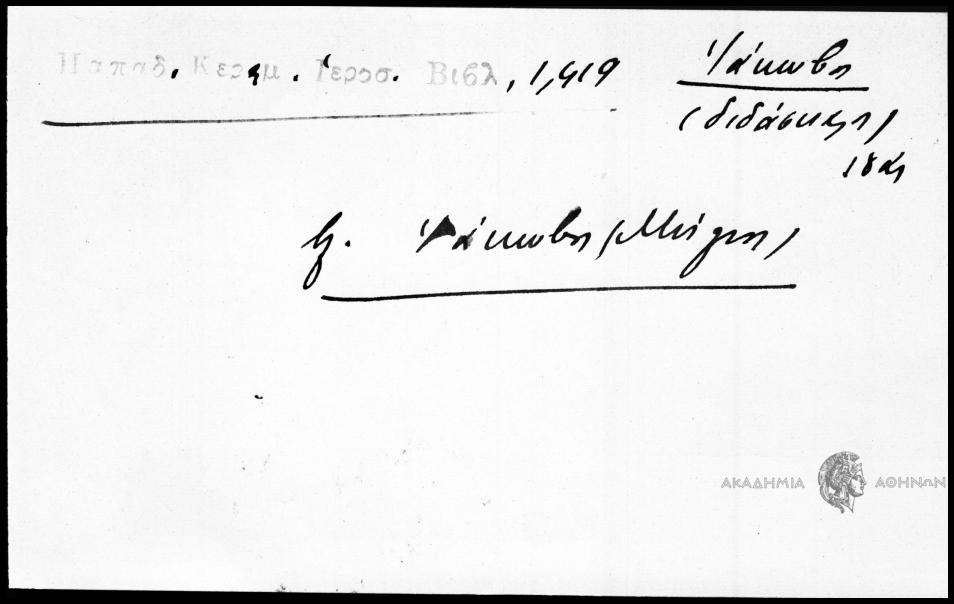 Παπαδ. Κεραμ. Ἱεροσ. Βιβλ, 1,419
Ἰάκωβος
(διδάσκαλος)
18 αι
βλ. Ἰάκωβος (Μάγνης)
ΑΚΑΔΗΜΙΑ ΑΘΗΝΩΝ